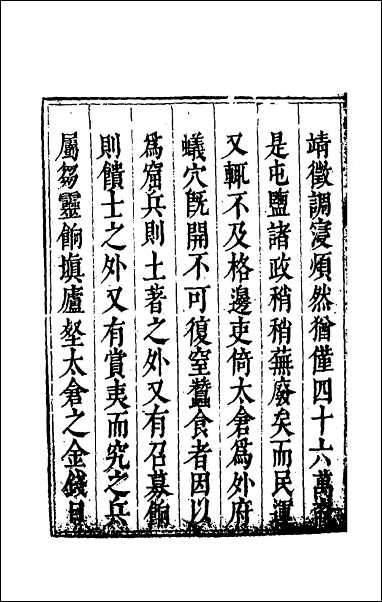 靖徵調寖煩然猶僅四十六萬
是屯鹽諸政稍稍蕪廢矣而民運
又輒不及格邊吏倚太倉爲外府
蟻穴既開不可復窒蠶食者因以
爲窟兵則土著之外又有召募餉
則饋士之外又有賞夷而究之兵
屬芻靈餉塡廬壑太倉之金錢日